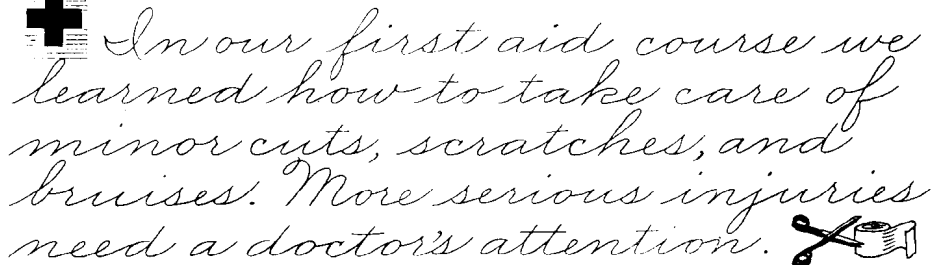 In our first aid course we
learned how to take care of
minor cuts, scratches, and
bruises. More serious injuries
need a doctor's attention.